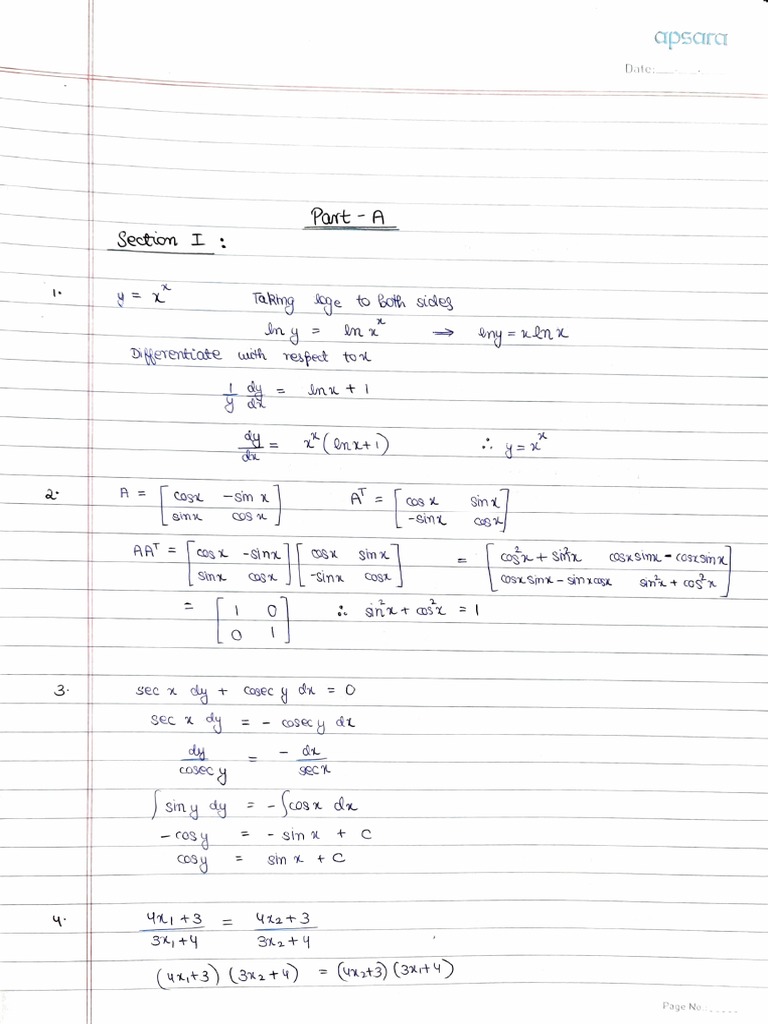 apsara
Date:
Part - A
Section I :
1. y = x^x Taking loge to both sides
ln y = ln x^x → lny = x ln x
Differentiate with respect to x
1/y dy/dx = lnx + 1
dy/dx = x^x (lnx+1) ∴ y = x^x
2. A = [cosx -sin x; sinx cosx] A^T = [cosx sinx; -sinx cosx]
AA^T = [cosx -sinx; sinx cosx] [cosx sinx; -sinx cosx] = [cos²x + sin²x cosx sinx - cosx sinx; cosx sinx - sinx cosx sin²x + cos²x]
= [1 0; 0 1] ∴ sin²x + cos²x = 1
3. sec x dy + cosec y dx = 0
sec x dy = - cosec y dx
dy/cosec y = - dx/sec x
∫ sin y dy = -∫cosx dx
-cosy = - sin x + C
cosy = sin x + C
4. 4x₁+3/3x₁+4 = 4x₂+3/3x₂+4
(4x₁+3) (3x₂+4) = (4x₂+3) (3x₁+4)
Page No.: